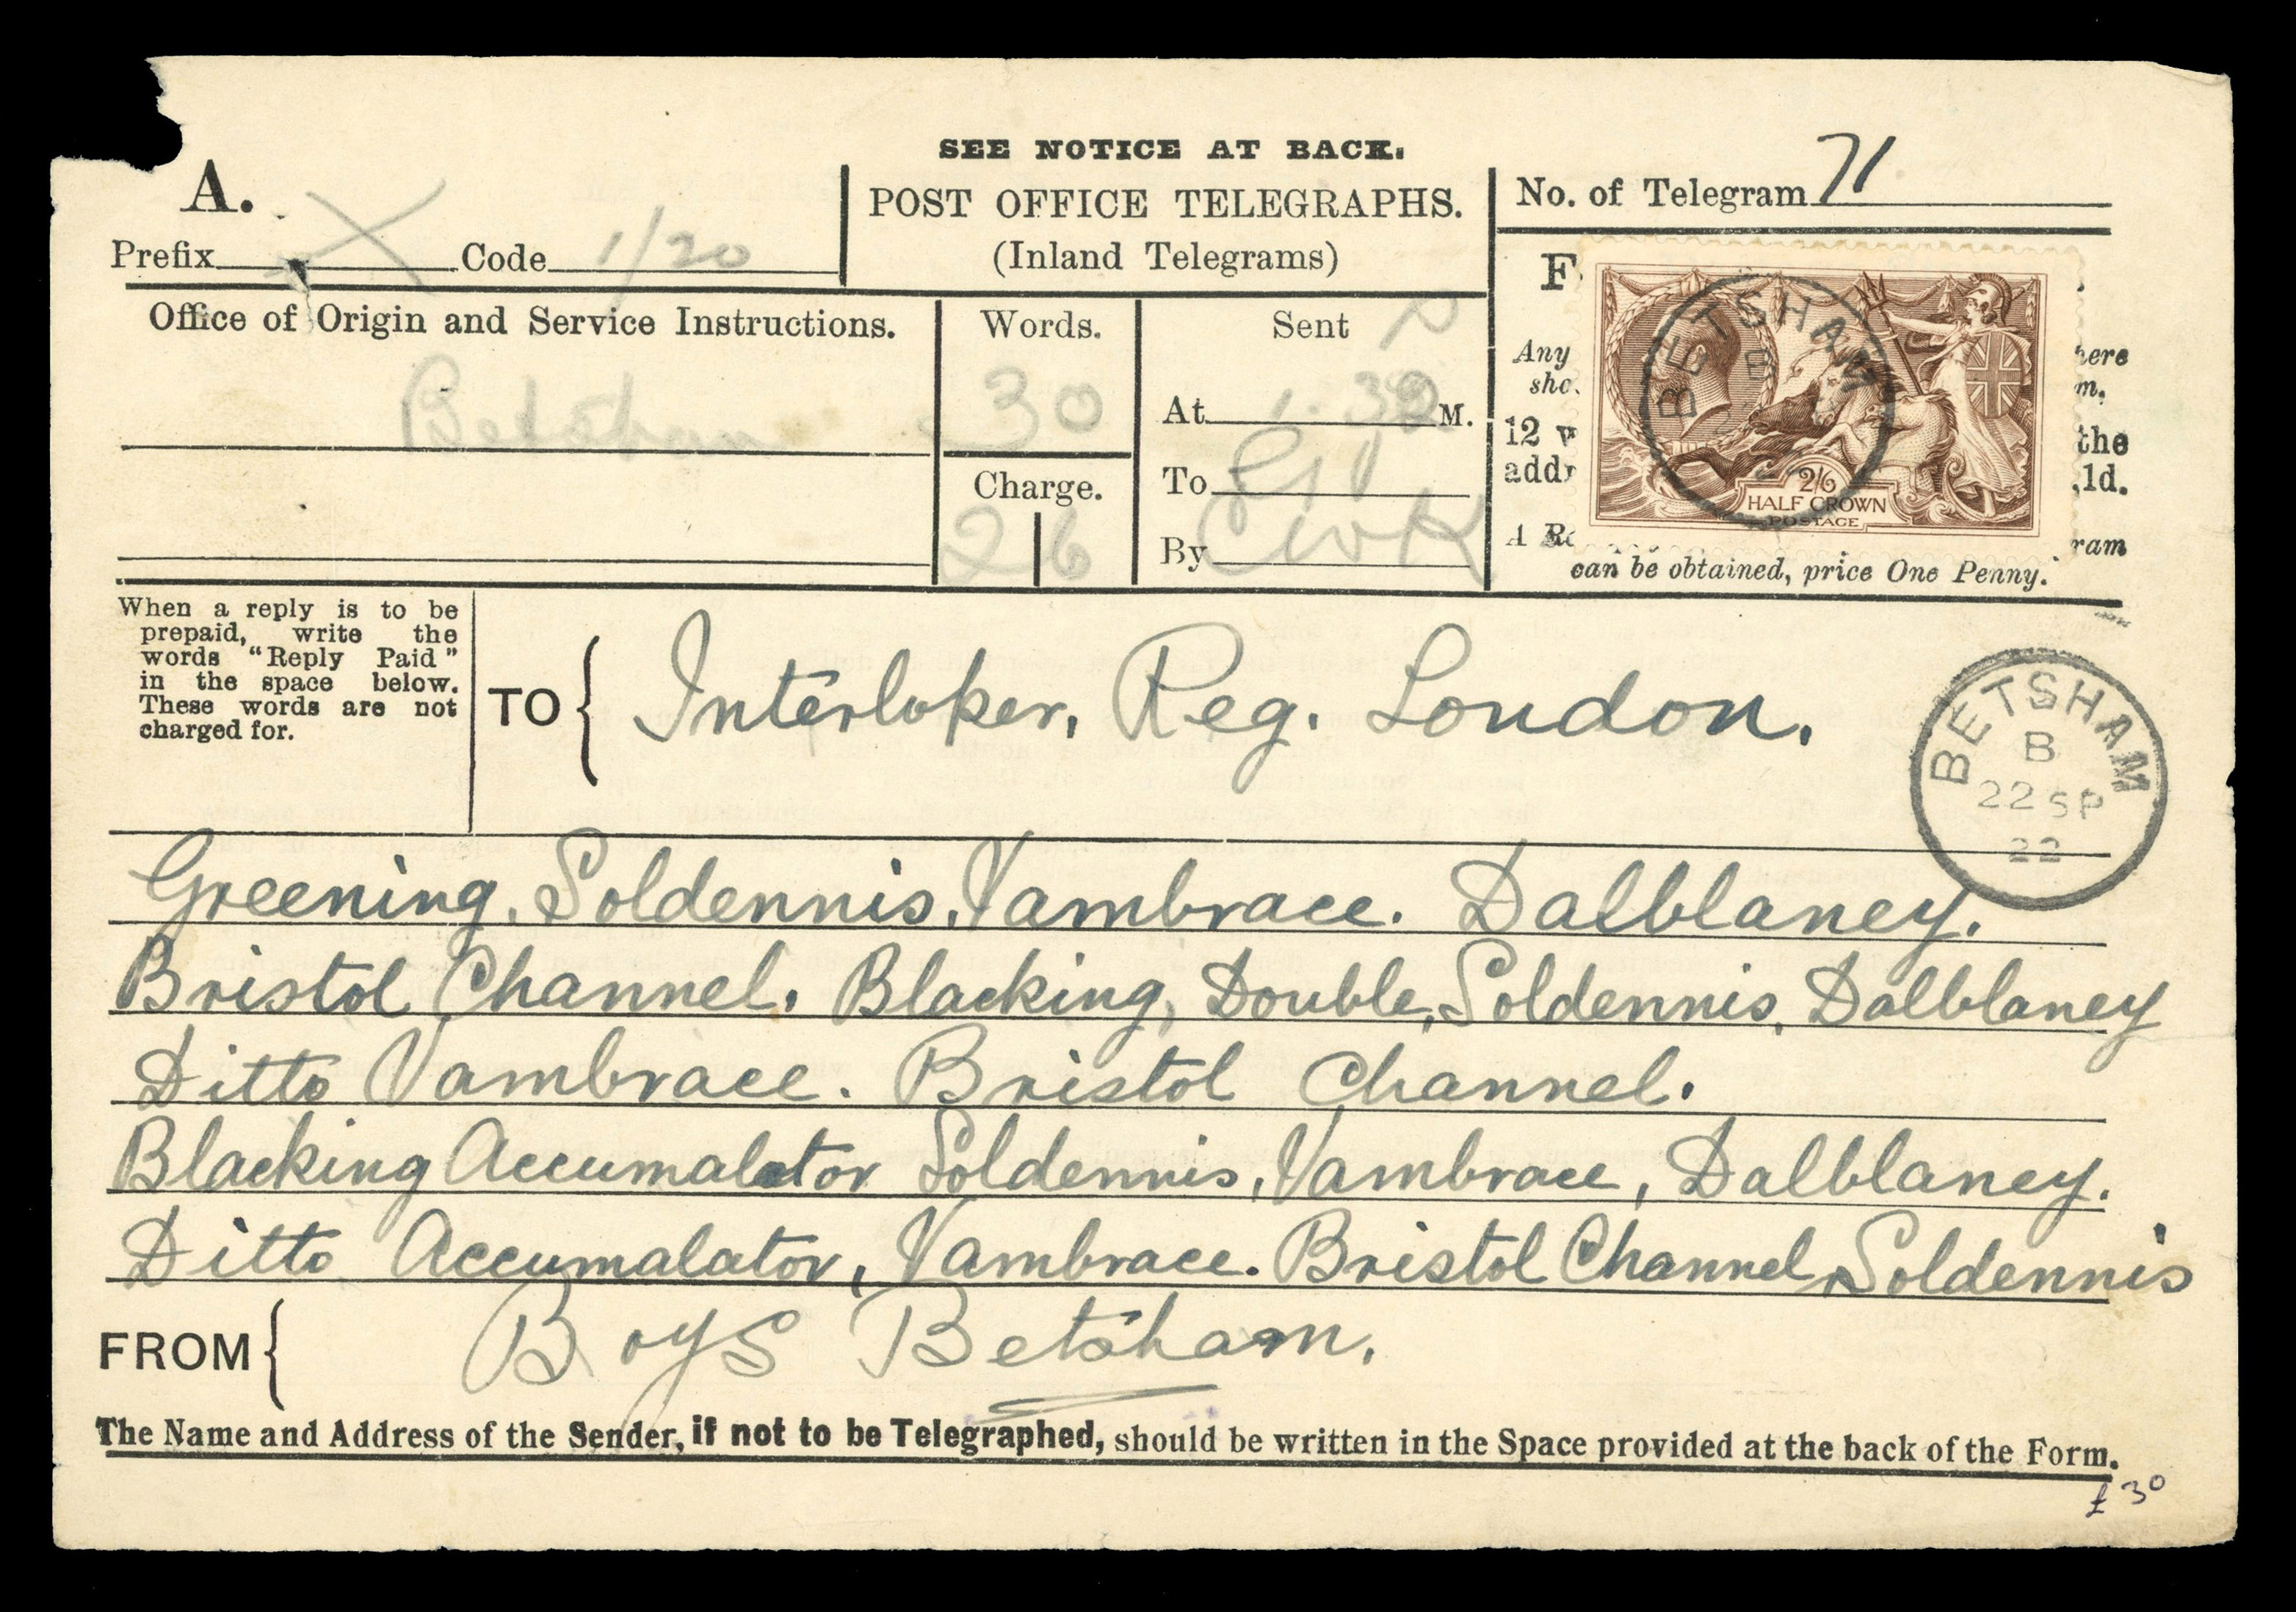 SEE NOTICE AT BACK.
A.
POST OFFICE TELEGRAPHS.
(Inland Telegrams)
No. of Telegram 71
Prefix Code 1/20
Office of Origin and Service Instructions.
Betsham
Words.
30
Charge.
2 6
Sent
At 1.32 M.
To
By
F
Any here
sho m.
12 w the
addr 1d.
A Re ram
can be obtained, price One Penny.
BETSHAM
B
2/6
HALF CROWN
POSTAGE
When a reply is to be
prepaid, write the
words "Reply Paid"
in the space below.
These words are not
charged for.
TO Interloper, Reg. London.
BETSHAM
B
22 SP
22
Greening, Soldennis, Vambrace. Dalblaney.
Bristol Channel. Blacking, Double, Soldennis, Dalblaney
Ditto Vambrace. Bristol Channel.
Blacking Accumalator Soldennis, Vambrace, Dalblaney.
Ditto Accumalator, Vambrace. Bristol Channel, Soldennis
FROM Boys Betsham.
The Name and Address of the Sender, if not to be Telegraphed, should be written in the Space provided at the back of the Form.
£30